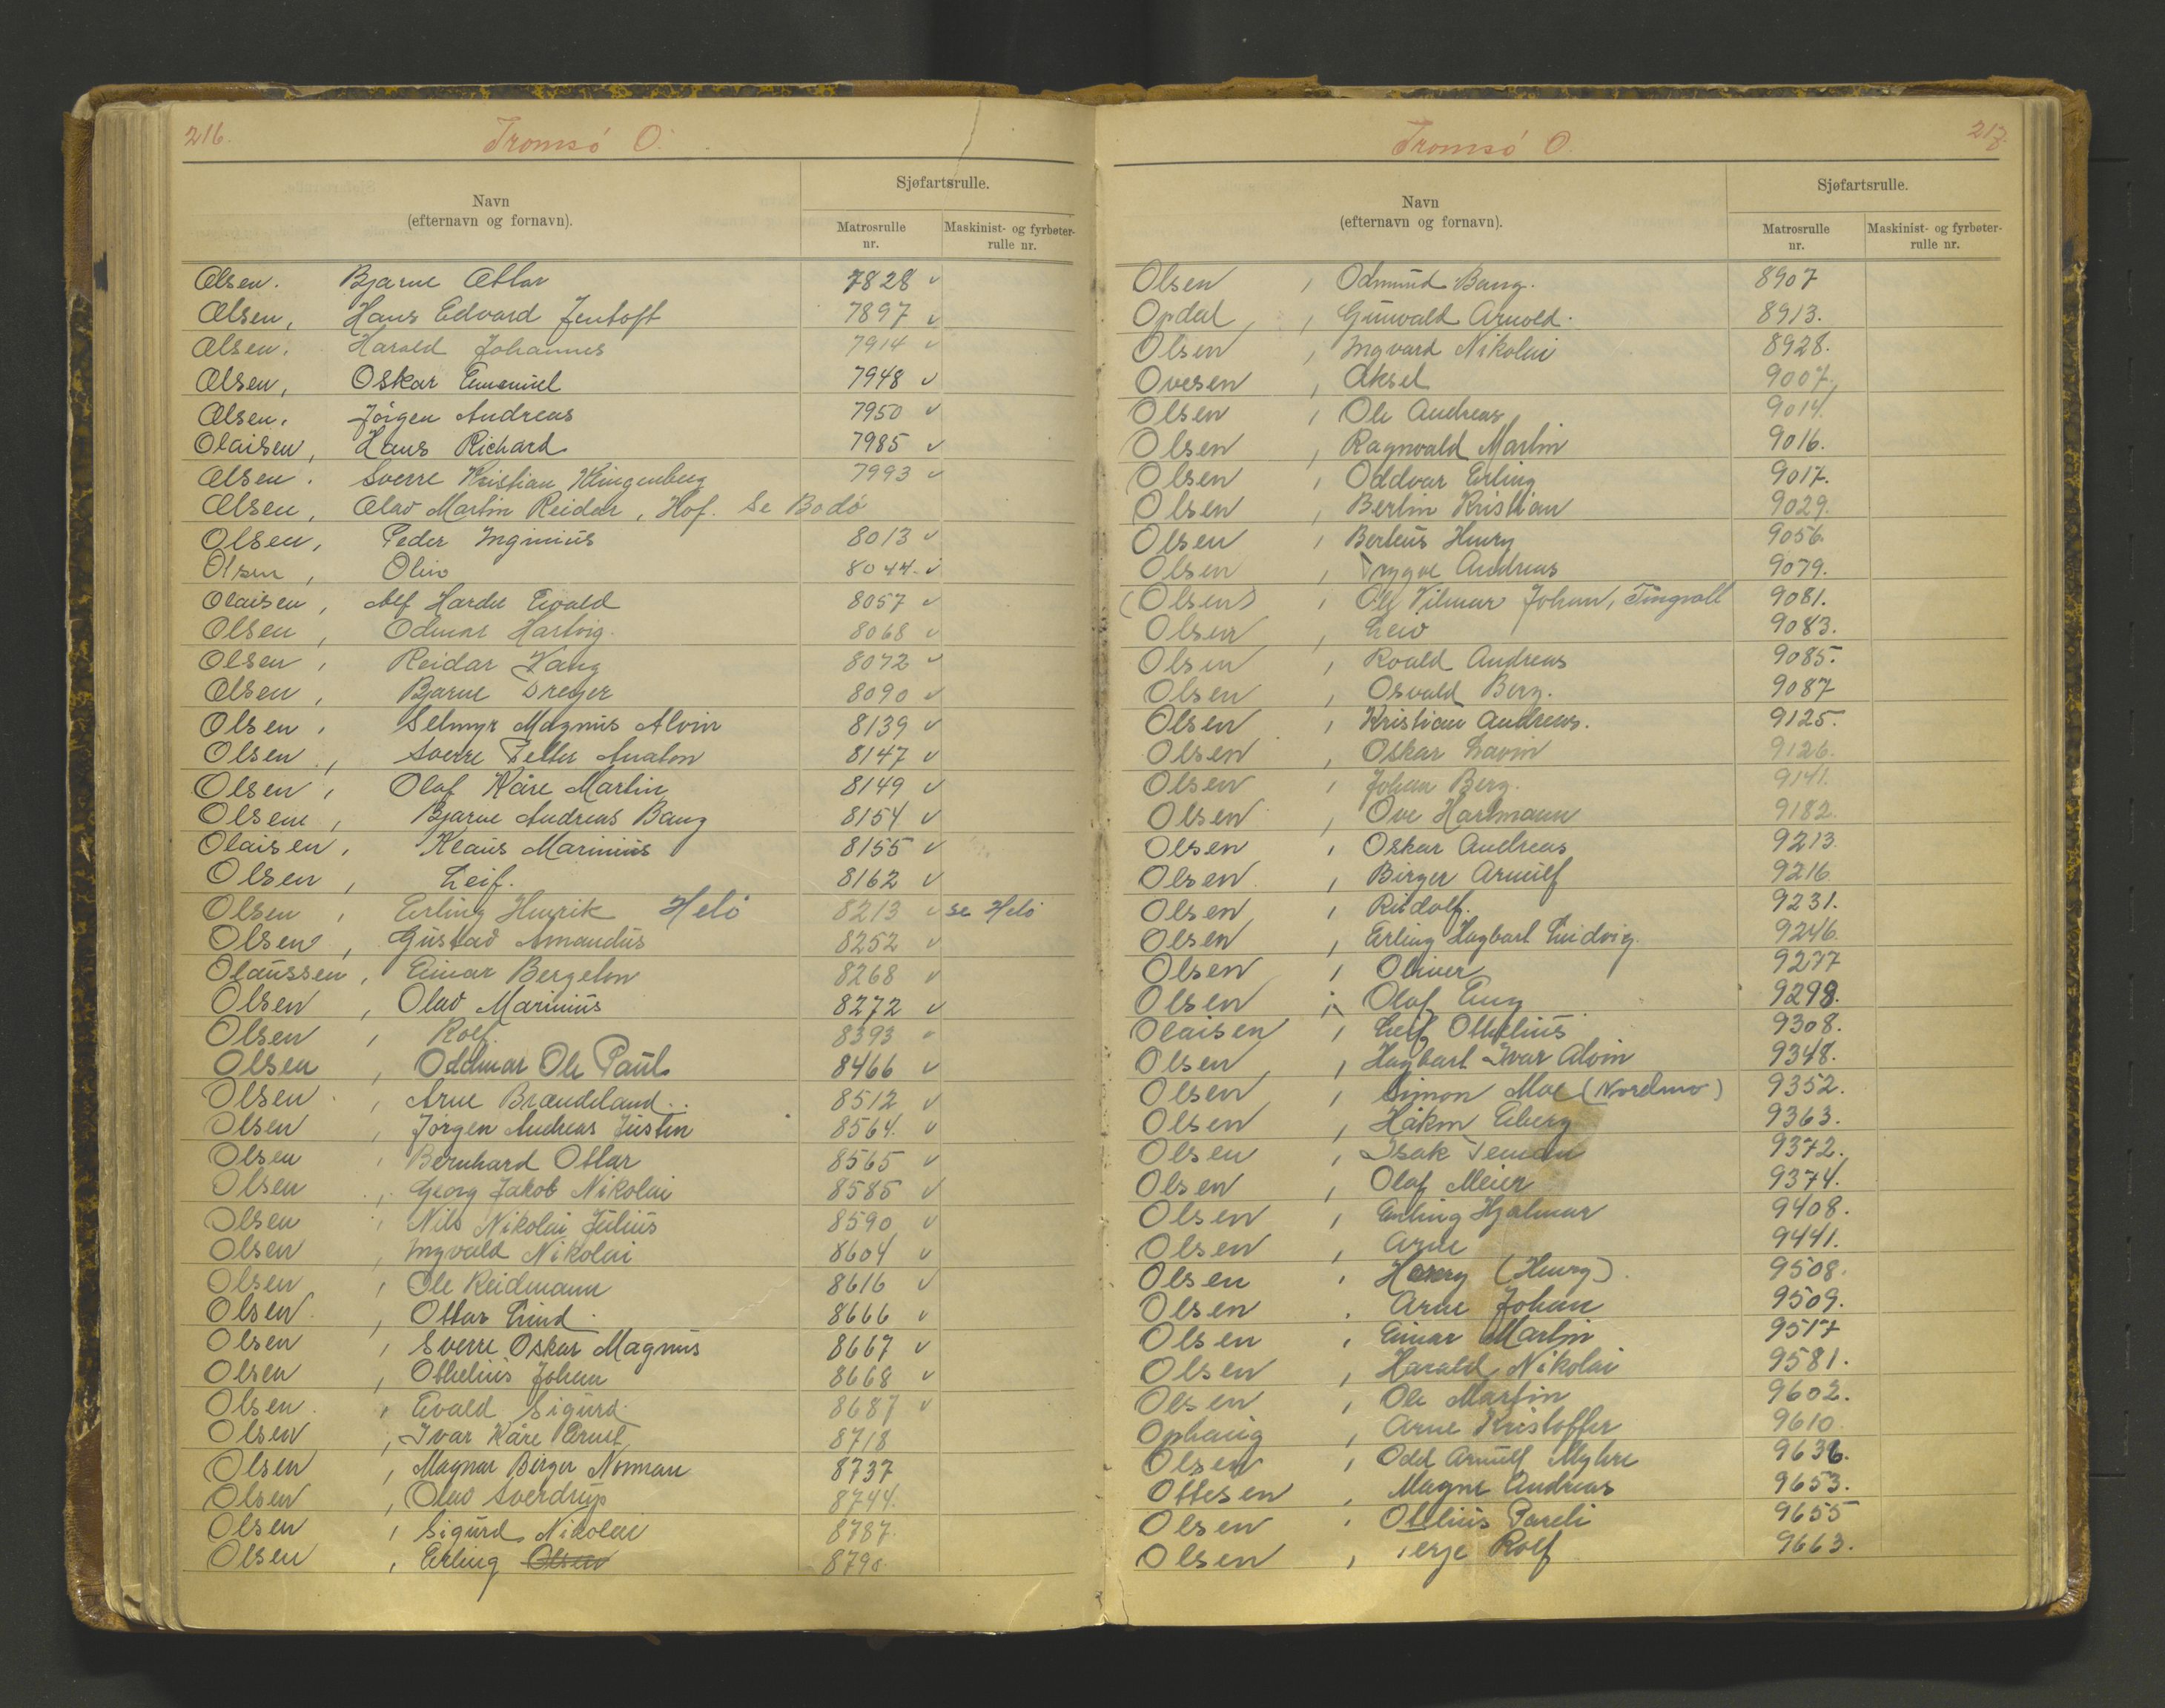 216.
Tromsø O.
Navn
(efternavn og fornavn).
Sjøfartsrulle.
Matrosrulle
nr.
Maskinist- og fyrbøter-
rulle nr.
Olsen. Bjarne Ottar 7828 v
Olsen, Hans Edvard Jentoft 7897 v
Olsen. Harald Johannes 7914 v
Olsen, Oskar Emanuel 7948 v
Olsen. Jørgen Andreas 7950 v
Olaisen, Hans Richard 7985 v
Olsen. Sverre Kristian Klingenberg 7993 v
Olsen, Olav Martin Reidar, Hof. Se Bodø
Olsen, Peder Ingmius 8013 v
Olsen, Oliv 8044. v
Olaisen, Alf Hardu Evald 8057 v
Olsen, Odmar Hartvig. 8068 v
Olsen, Reidar Vang 8072 v
Olsen, Bjarne Dreyer 8090 v
Olsen, Selmyr Magnus Alvin 8139 v
Olsen, Sverre Petter Anaton 8147 v
Olsen, Olaf Kåre Martin 8149 v
Olsen, Bjarne Andreas Bang 8154 v
Olaisen, Klaus Marinius 8155 v
Olsen, Leif. 8162 v
Olsen, Erling Henrik Helø 8213 v se Helø
Olsen, Gustav Amandus 8252 v
Olaussen, Einar Bergeton 8268 v
Olsen, Olav Marinius 8272 v
Olsen, Rolf. 8393 v
Olsen, Oddmar Ole Paul 8466 v
Olsen, Arne Brændeland. 8512 v
Olsen, Jørgen Andreas Justin 8564. v
Olsen, Bernhard Ottar 8565 v
Olsen, Georg Jakob Nikolai 8585 v
Olsen, Nils Nikolai Julius 8590 v
Olsen, Ingvald Nikolai 8604 v
Olsen, Ole Reidmann 8616 v
Olsen, Ottar Lind 8666 v
Olsen, Sverre Oskar Magnus 8667 v
Olsen, Othelius Johan 8668 v
Olsen, Evald Sigurd 8687 v
Olsen, Ivar Kåre Ernst 8718
Olsen, Magnar Birger Norman 8737
Olsen, Olav Sverdrup 8744.
Olsen, Sigurd Nikolai 8787
Olsen, Erling Olsen 8790.
217.
Tromsø O.
Navn
(efternavn og fornavn).
Sjøfartsrulle.
Matrosrulle
nr.
Maskinist- og fyrbøter-
rulle nr.
Olsen, Odmund Bang. 8907
Opdal, Gunvald Arnold. 8913.
Olsen, Ingvard Nikolai 8928.
Ovesen, Aksel 9007.
Olsen, Ole Andreas 9014.
Olsen, Ragnvald Martin 9016.
Olsen, Oddvar Erling 9017.
Olsen, Bertin Kristian 9029.
Olsen, Berteus Henry 9056.
Olsen, Trygve Andreas 9079.
(Olsen), Ole Vilmar Johan, Tingvoll 9081.
Olsen, Leiv 9083.
Olsen, Roald Andreas 9085.
Olsen, Osvald Berg. 9087
Olsen, Kristian Andreas. 9125.
Olsen, Oskar Lavin 9126.
Olsen, Johan Berg. 9141.
Olsen, Ove Hartmann 9182.
Olsen, Oskar Andreas 9213.
Olsen, Birger Arnulf 9216
Olsen, Rudolf. 9231.
Olsen, Erling Hagbart Ludvig. 9246.
Olsen, Oliver 9277
Olsen, Olaf Eng 9298.
Olaisen, Leif Othelius 9308.
Olsen, Hagbart Ivar Alvin 9348.
Olsen, Simon Moe (Nordmo) 9352.
Olsen, Håkon Eberg 9363.
Olsen, Isak Teman 9372.
Olsen, Olaf Meier 9374.
Olsen, Erling Hjalmar 9408.
Olsen, Arne 9441.
Olsen, Harry (Henry). 9508.
Olsen, Arne Johan 9509.
Olsen, Einar Martin 9517
Olsen, Harald Nikolai 9581.
Olsen, Ole Martin 9602.
Ophaug, Arne Kristoffer 9610
Olsen, Odd Arnulf Myhre 9636.
Ottesen, Magne Andreas 9653.
Olsen, Otelius Pareli 9655
Olsen, Terje Rolf 9663.